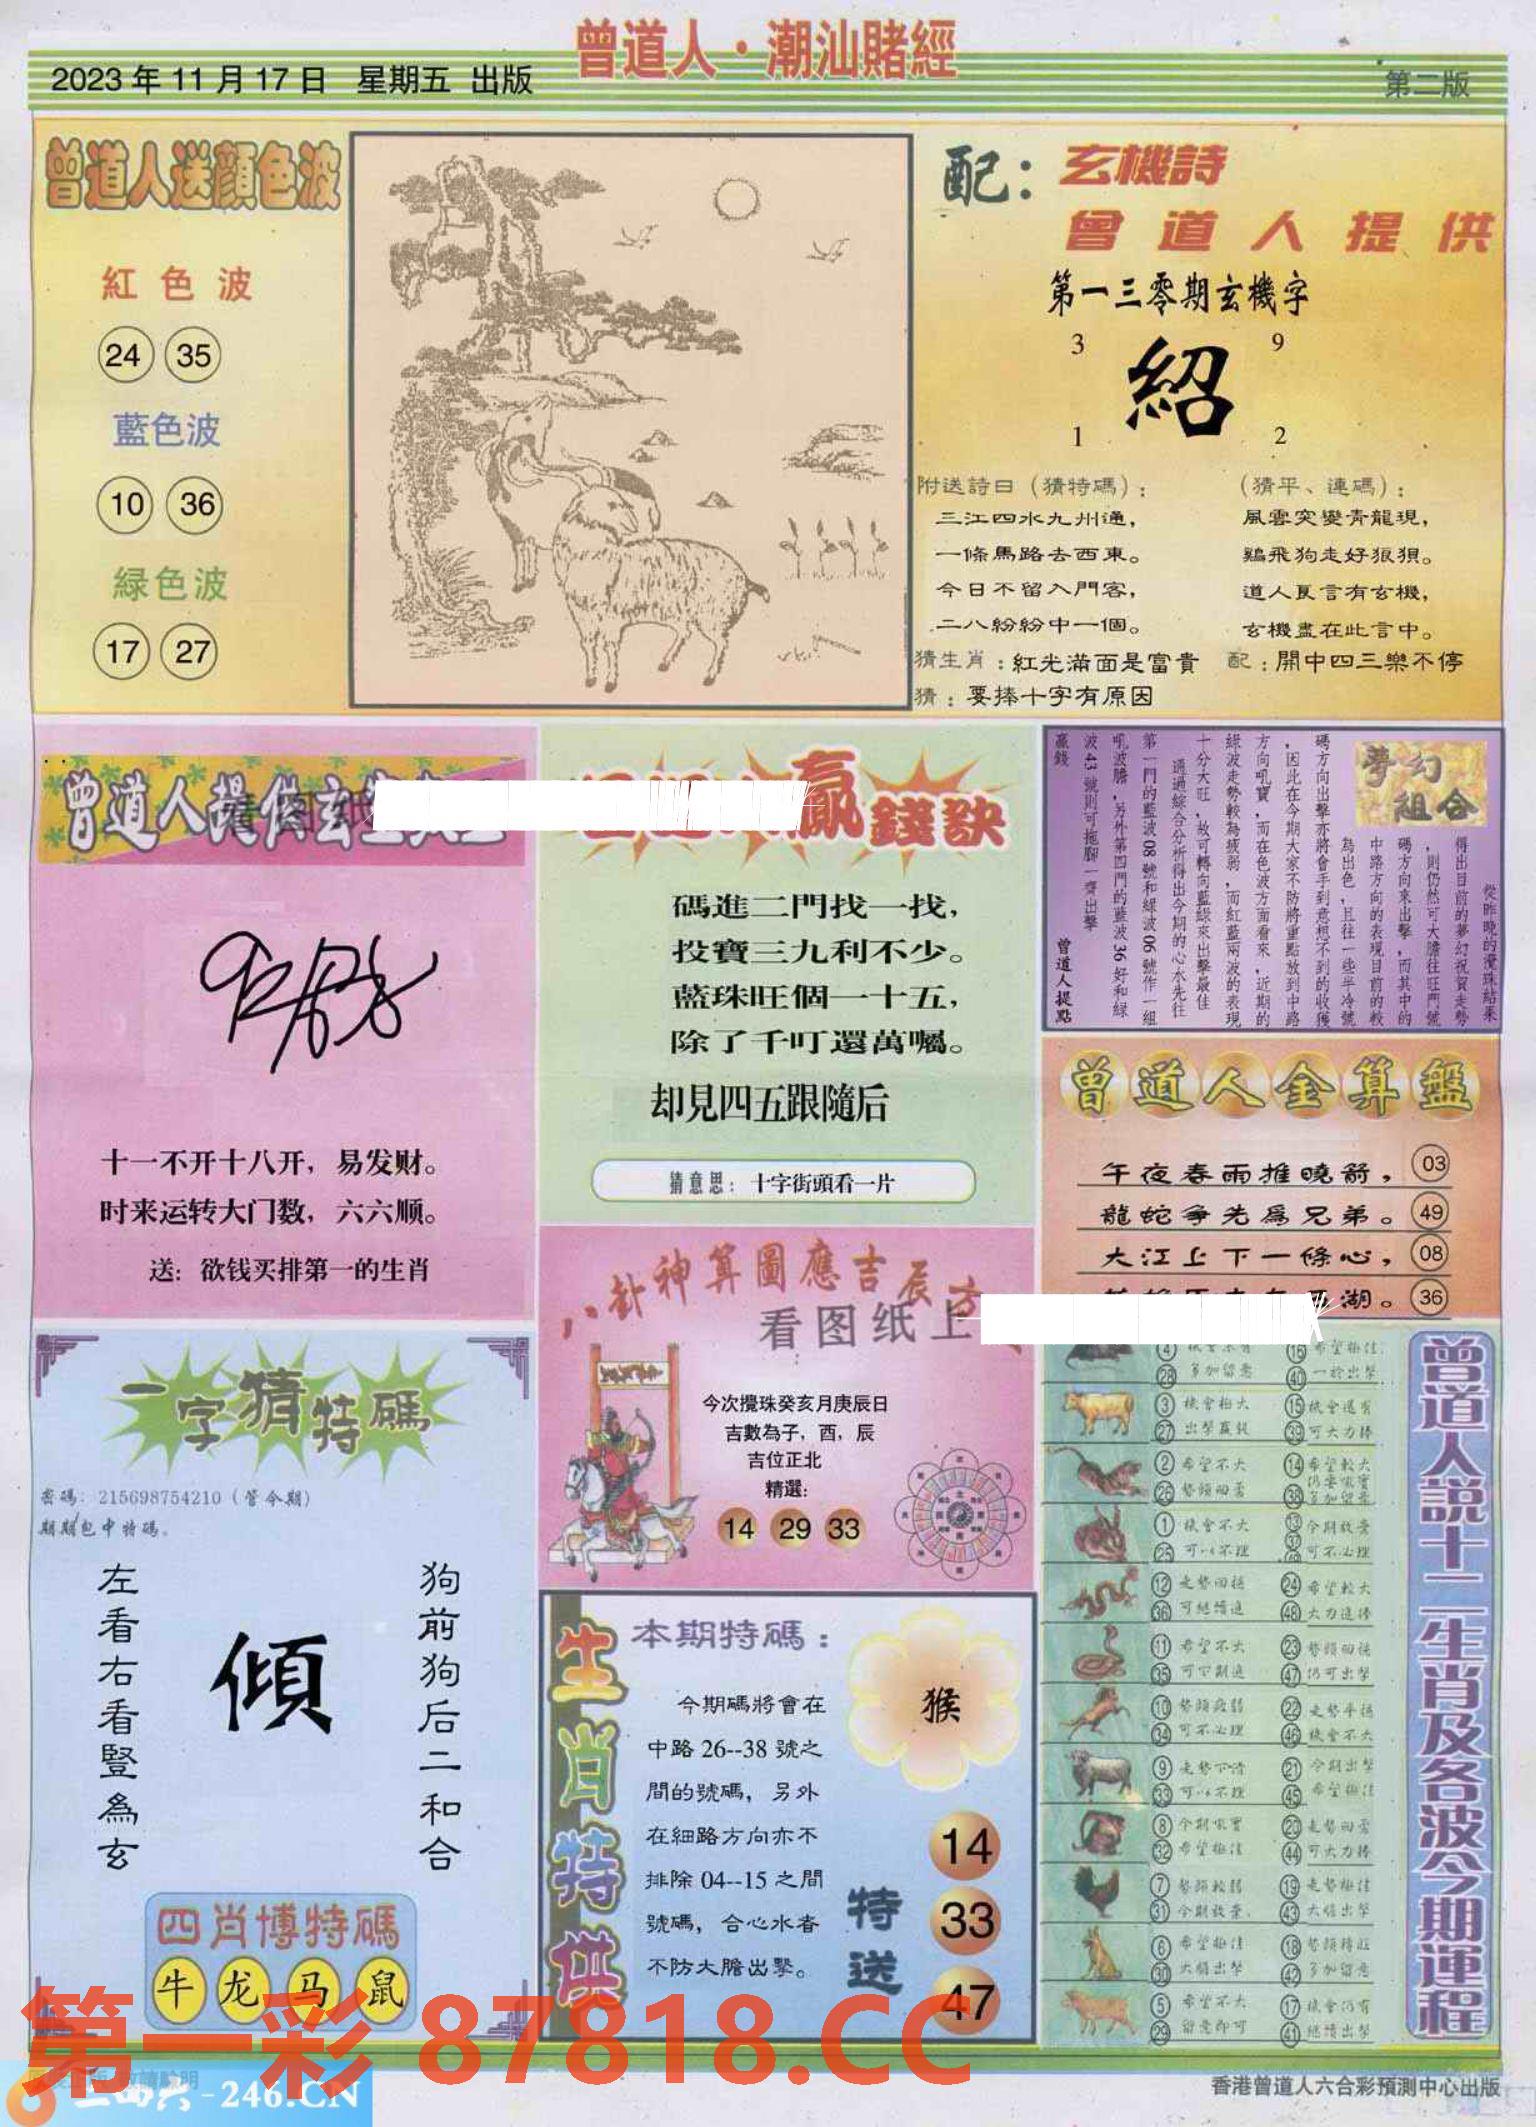 曾道人·潮汕賭經
2023年11月17日 星期五 出版
第二版
曾道人送顔色波
紅色波
24 35
藍色波
10 36
緑色波
17 27
配：玄機詩
曾道人提供
第一三零期玄機字
3 9
紹
1 2
附送詩曰（猜特碼）：
三江四水九州通，
一條馬路去西東。
今日不留入門客，
二八紛紛中一個。
（猜平、連碼）：
風雲突變青龍現，
鷄飛狗走好狼狽。
道人良言有玄機，
玄機盡在此言中。
猜生肖：紅光滿面是富貴 配：開中四三樂不停
猜：要捧十字有原因
曾道人提供玄
十一不开十八开，易发财。
时来运转大门数，六六顺。
送：欲钱买排第一的生肖
贏錢訣
碼進二門找一找，
投寶三九利不少。
藍珠旺個一十五，
除了千叮還萬囑。
却見四五跟隨后
猜意思：十字街頭看一片
夢幻組合
從昨晚的攪珠結果
得出目前的夢幻祝賀走勢
，則仍然可大膽往旺門號
碼方向來出擊，而其中的
中路方向的表現目前的較
為出色，且往一些半冷號
碼方向出擊亦將會手到意想不到的收獲
，因此在今期大家不防將重點放到中路
方向吼寶，而在色波方面看來，近期的
綠波走勢較為疲弱，而紅藍兩波的表現
十分大旺，故可轉向藍綠來出擊最佳
通過綜合分析得出今期的心水先往
第一門的藍波08號和綠波06號作一組
吼波膽，另外第四門的藍波36好和綠
波43號則可拖腳一齊出擊
贏錢
曾道人提點
曾道人金算盤
午夜春雨推曉箭， 03
龍蛇爭先為兄弟。 49
大江上下一條心， 08
湖。 36
八卦神算圖應吉辰方
看图纸上
今次攪珠癸亥月庚辰日
吉數為子，酉，辰
吉位正北
精選：
14 29 33
一字猜特碼
密碼：215698754210（管今期）
期期包中特碼。
左看右看豎為玄
傾
狗前狗后二和合
四肖博特碼
牛 龙 马 鼠
生肖特供
本期特碼：
今期碼將會在
中路26--38號之
間的號碼，另外
在細路方向亦不
排除04--15之間
號碼，合心水者
不防大膽出擊。
猴
特送
14
33
47
曾道人説十二生肖及各波今期運程
4 16 希望極佳
28 多加留意 40 一於出擊
3 機會極大 15 機會還有
27 出擊贏錢 39 可大力捧
2 希望不大 14 希望較大
26 38
1 機會不大 今期放棄
25 可以不理 可不必理
12 24 希望較大
36 可繼續追 48 大力追捧
11 希望不大 23
35 47 仍可出擊
10 22 走勢平穩
34 可不必理 46 機會不大
9 21 今期出擊
33 可以不理 45 希望極佳
8 20
32 希望極佳 44 可大力捧
7 19 走勢極佳
31 今期放棄 43 大膽出擊
6 希望極佳 18
30 大膽出擊 42 多加留意
5 希望不大 17 機會仍有
29 留意即可 41 繼續出擊
第一彩 87818.CC
二四六-246.CN
香港曾道人六合彩預測中心出版